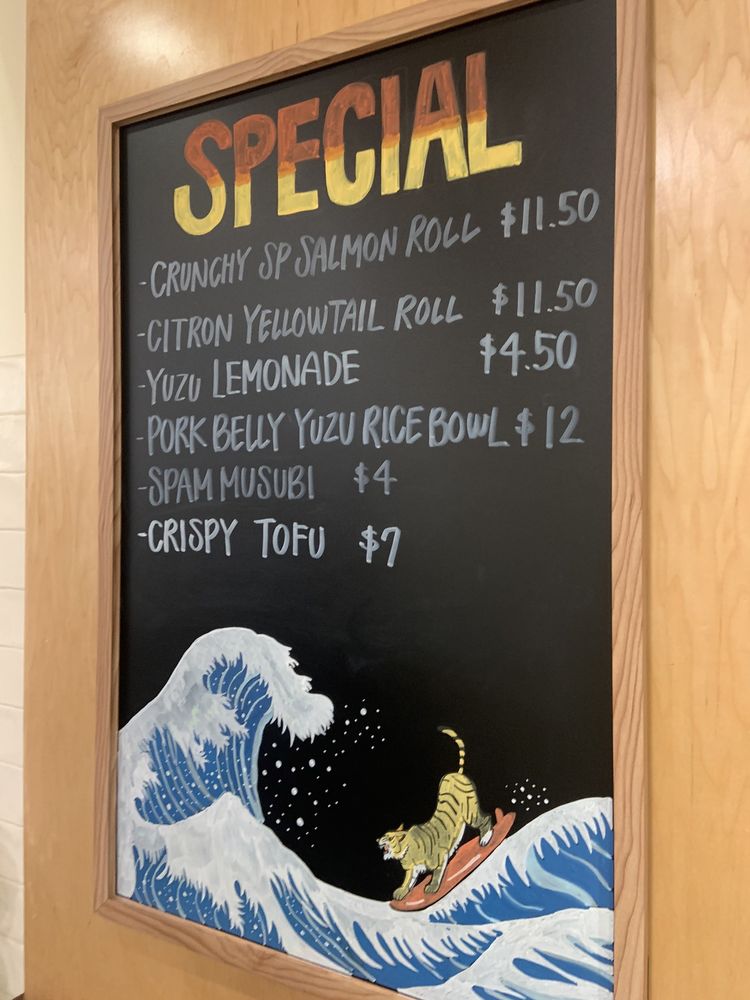 SPECIAL
-CRUNCHY SP SALMON ROLL $11.50
-CITRON YELLOWTAIL ROLL $11.50
-YUZU LEMONADE $4.50
-PORK BELLY YUZU RICE BOWL $12
-SPAM MUSUBI $4
-CRISPY TOFU $7